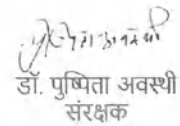 डॉ. पुष्पिता अवस्थी
संरक्षक